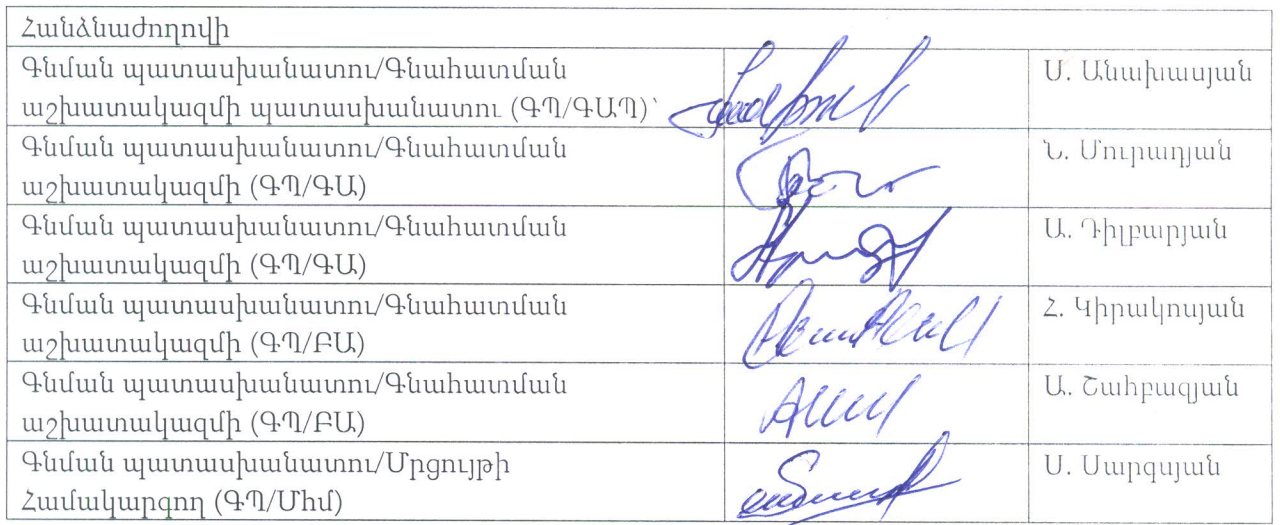 Հանձնաժողովի
Գնման պատասխանատու/Գնահատման
աշխատակազմի պատասխանատու (ԳՊ/ԳԱՊ)՝
Մ. Անախասյան
Գնման պատասխանատու/Գնահատման
աշխատակազմի (ԳՊ/ԳԱ)
Ն. Մուրադյան
Գնման պատասխանատու/Գնահատման
աշխատակազմի (ԳՊ/ԳԱ)
Ա. Դիլբարյան
Գնման պատասխանատու/Գնահատման
աշխատակազմի (ԳՊ/ԲԱ)
Հ. Կիրակոսյան
Գնման պատասխանատու/Գնահատման
աշխատակազմի (ԳՊ/ԲԱ)
Ա. Շահբազյան
Գնման պատասխանատու/Մրցույթի
Համակարգող (ԳՊ/Մհմ)
Ս. Սարգսյան